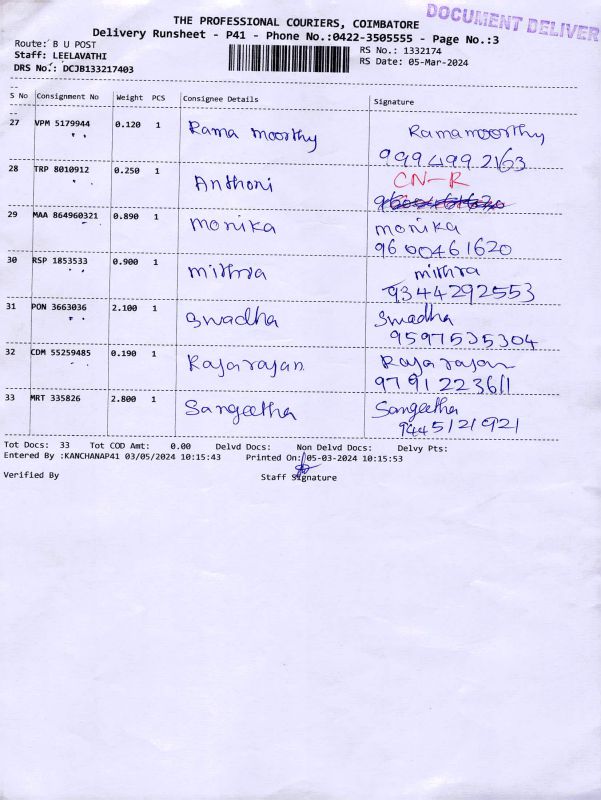 DOCUMENT DELIVER
THE PROFESSIONAL COURIERS, COIMBATORE
Delivery Runsheet - P41 - Phone No.:0422-3505555 - Page No.:3
Route: B U POST
Staff: LEELAVATHI
DRS No.: DCJB133217403
RS No.: 1332174
RS Date: 05-Mar-2024
S No Consignment No Weight PCS Consignee Details Signature
27 VPM 5179944 0.120 1 Rama moorthy Ramamoorthy
9994992163
28 TRP 8010912 0.250 1 Anthoni CN-R
29 MAA 864960321 0.890 1 monika monika
9600461620
30 RSP 1853533 0.900 1 mithra mithra
9344292553
31 PON 3663036 2.100 1 Swadha Swadha
9597535304
32 CDM 55259485 0.190 1 Rajarajan Rajarajan
9791223611
33 MRT 335826 2.800 1 Sangeetha Sangeetha
9445121921
Tot Docs: 33 Tot COD Amt: 0.00 Delvd Docs: Non Delvd Docs: Delvy Pts:
Entered By :KANCHANAP41 03/05/2024 10:15:43 Printed On: 05-03-2024 10:15:53
Verified By Staff Signature